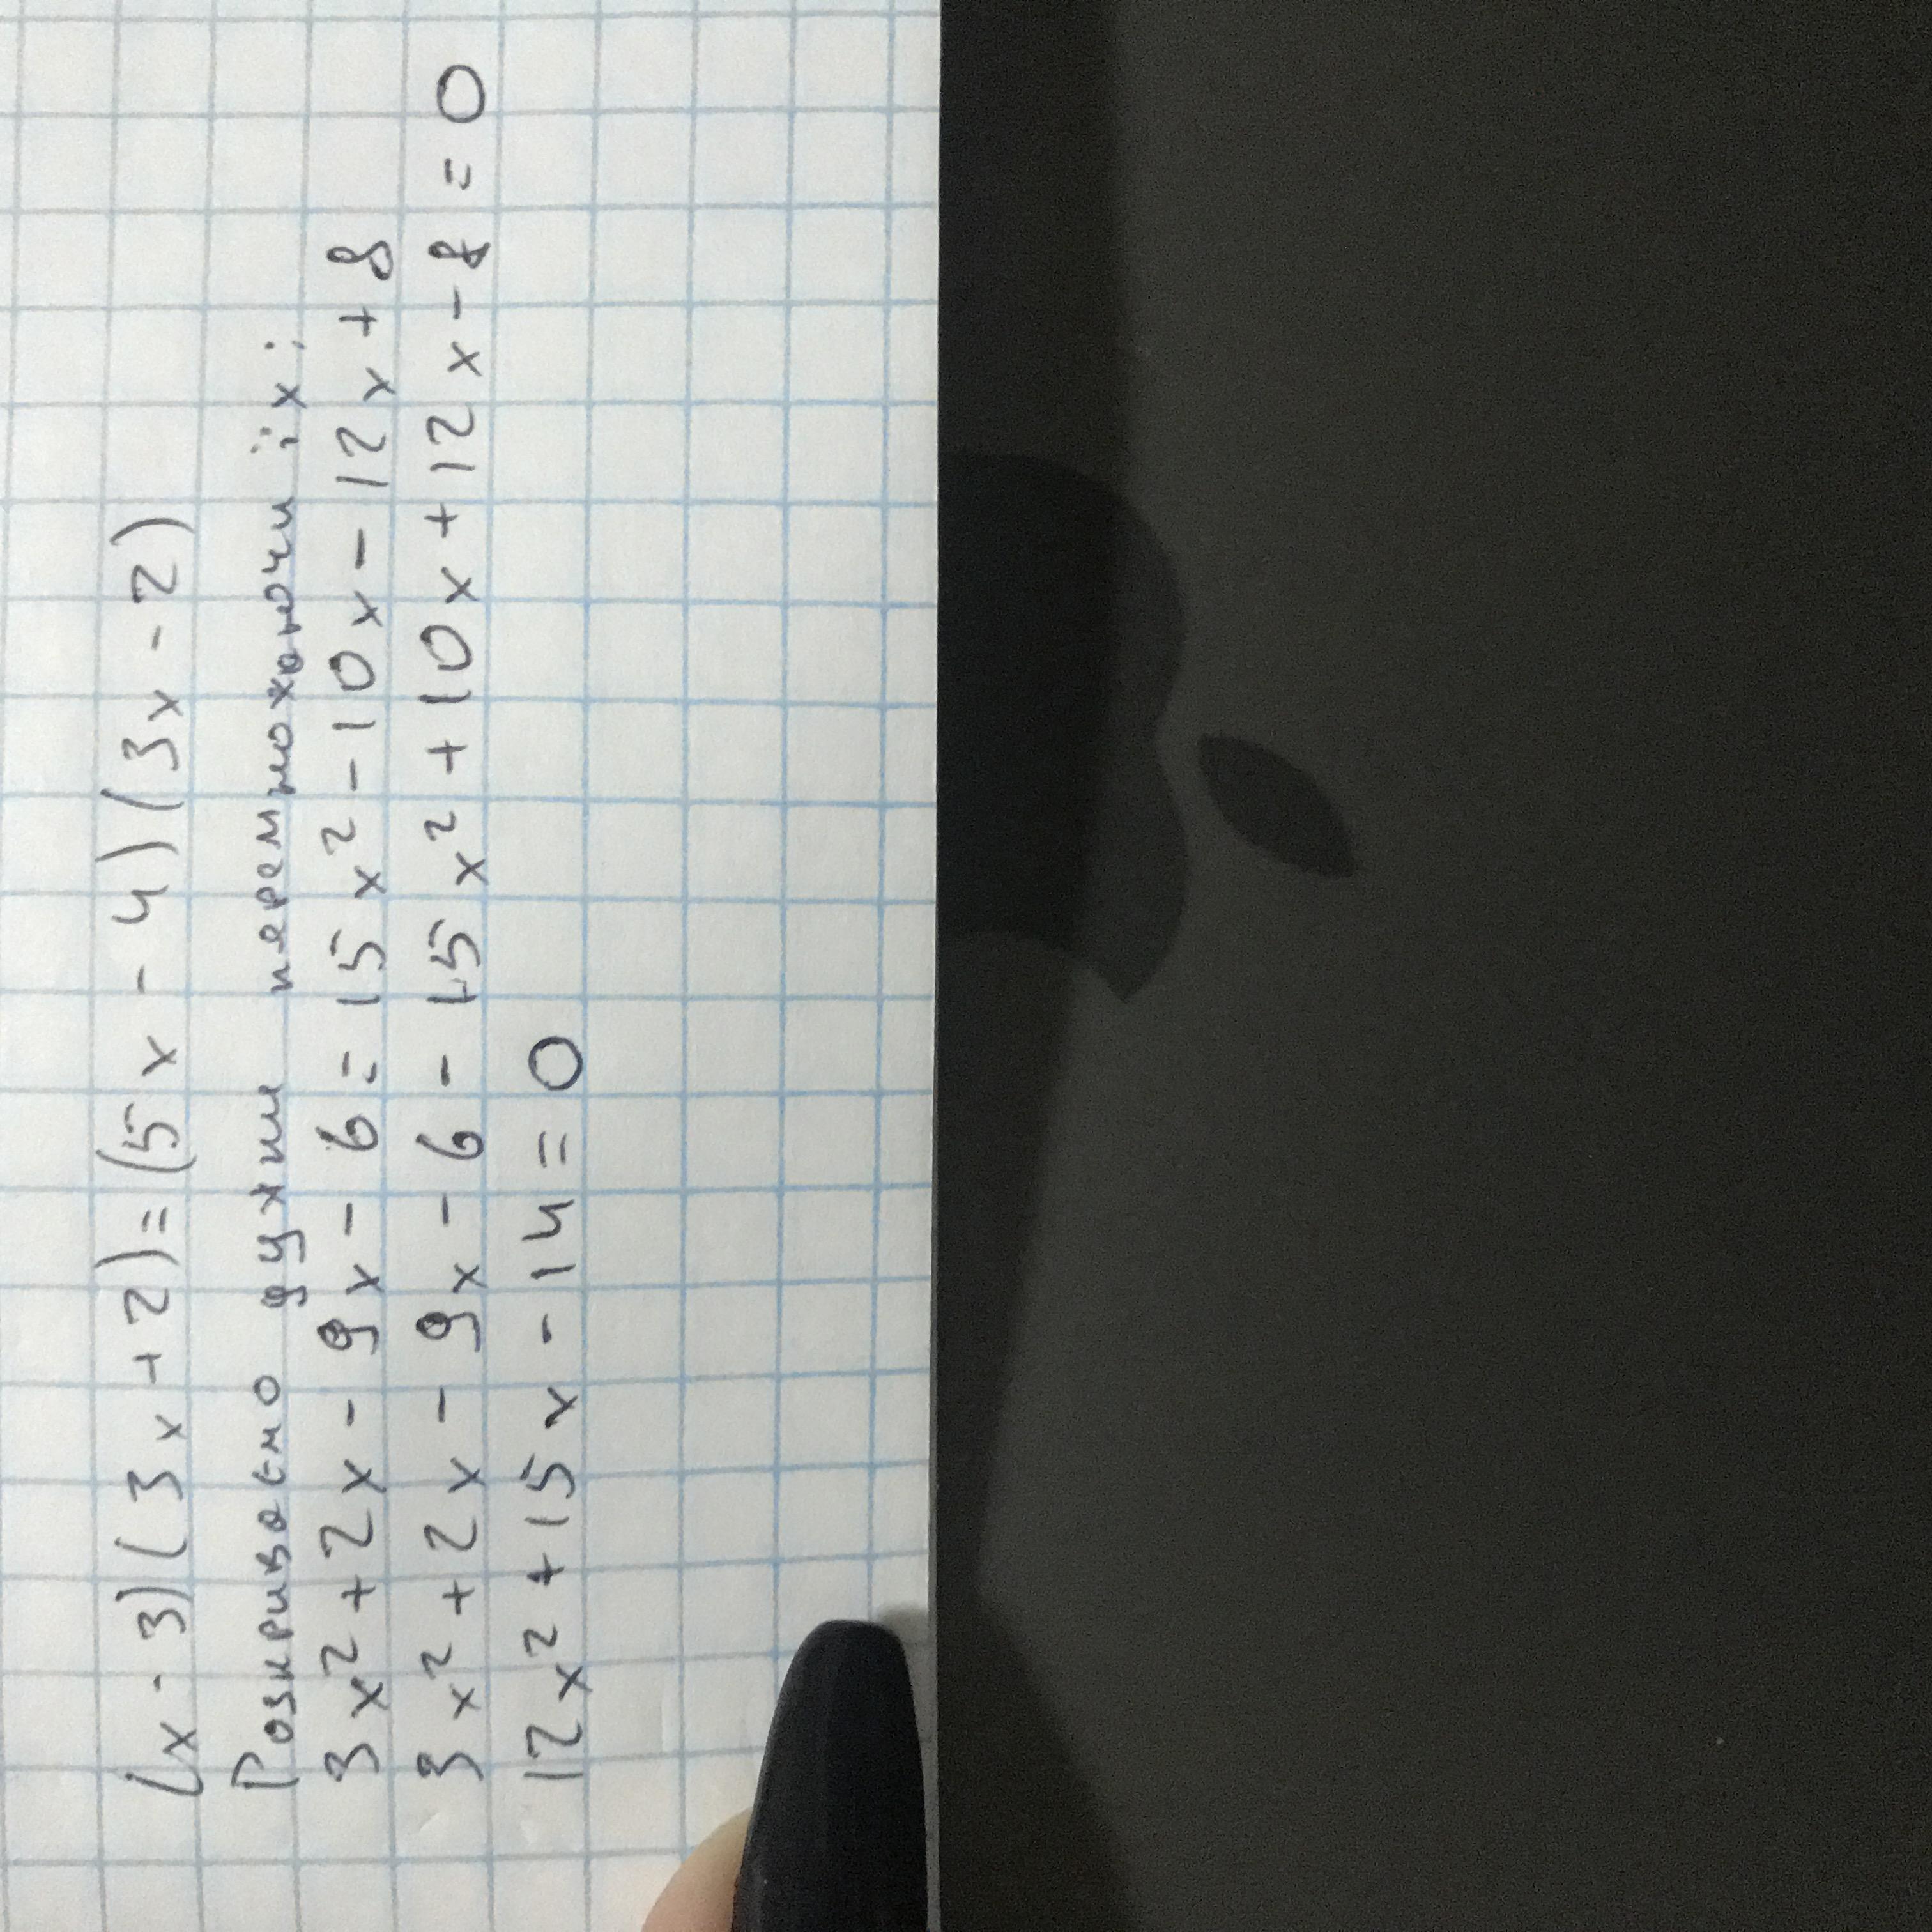 (x - 3)(3x + 2) = (5x - 4)(3x - 2)
Розкриваємо дужки перемножаючи їх:
3x² + 2x - 9x - 6 = 15x² - 10x - 12x + 8
3x² + 2x - 9x - 6 - 15x² + 10x + 12x - 8 = 0
12x² + 15x - 14 = 0